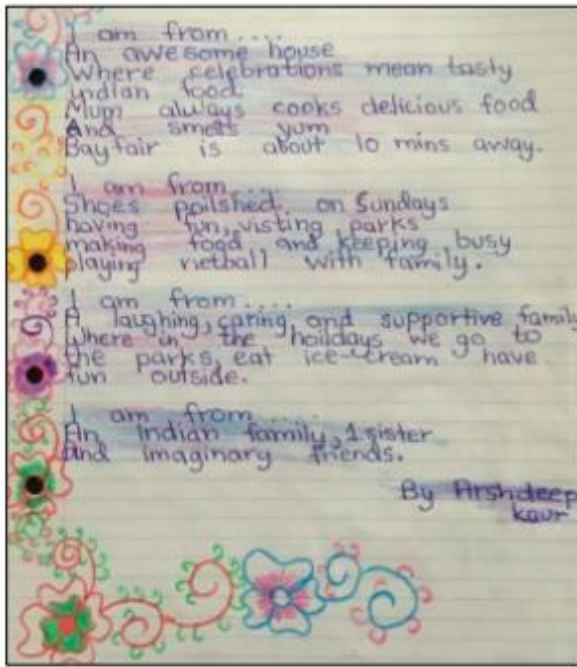 I am from....
An awesome house
Where celebrations mean tasty
indian food.
Mum always cooks delicious food
And smells yum
Bayfair is about 10 mins away.
I am from....
Shoes poilshed on Sundays
having fun, visting parks
making food, and keeping busy
playing netball with family.
I am from....
A laughing, caring, and supportive family
Where in the hoildays we go to
the parks, eat ice-cream have
fun outside.
I am from....
An indian family, 1 sister
and imaginary friends.
By Arshdeep
kaur